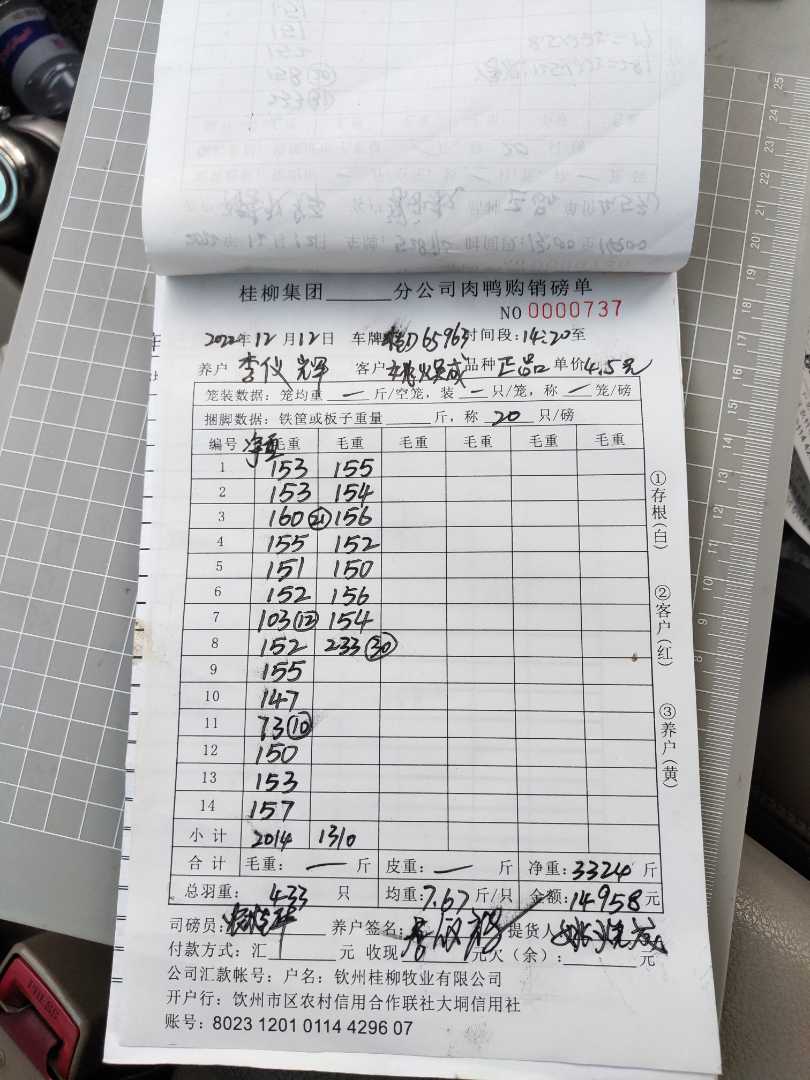 桂柳集团______分公司肉鸭购销磅单
NO 0000737
2022年12月12日 车牌 桂D65963 时间段:14:20至
养户 李仪辉 客户 品种 正品 单价 4.5元
笼装数据: 笼均重 一 斤/空笼, 装 一 只/笼, 称 一 笼/磅
捆脚数据: 铁筐或板子重量____斤, 称 20 只/磅
编号 净重 毛重 毛重 毛重 毛重 毛重 毛重
1 153 155
2 153 154
3 160 (21) 156
4 155 152
5 151 150
6 152 156
7 103 (12) 154
8 152 233 (30)
9 155
10 147
11 73 (10)
12 150
13 153
14 157
小计 2014 1310
合计 毛重: 一 斤 皮重: 一 斤 净重: 3324 斤
总羽重: 433 只 均重: 7.67 斤/只 金额: 14958 元
司磅员: 养户签名: 提货人
付款方式: 汇______元 收现 元欠(余):______元
公司汇款帐号: 户名: 钦州桂柳牧业有限公司
开户行: 钦州市区农村信用合作联社大垌信用社
账号: 8023 1201 0114 4296 07
①存根(白)
②客户(红)
③养户(黄)